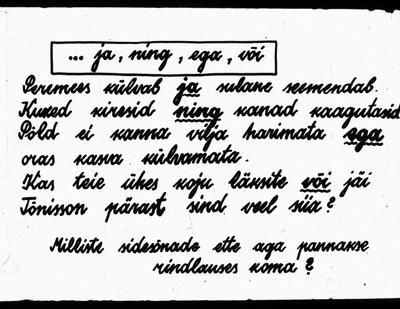 ... ja, ning, ega, või
Peremees külvab ja sulane seemendab.
Kuked kiresid ning kanad kaagutasid
Põld ei kanna vilja harimata ega
oras kasva külvamata.
Kas teie ühes koju läksite või jäi
Tõnisson pärast sind veel siia?
Milliste sidesõnade ette aga pannakse
rindlauses koma?